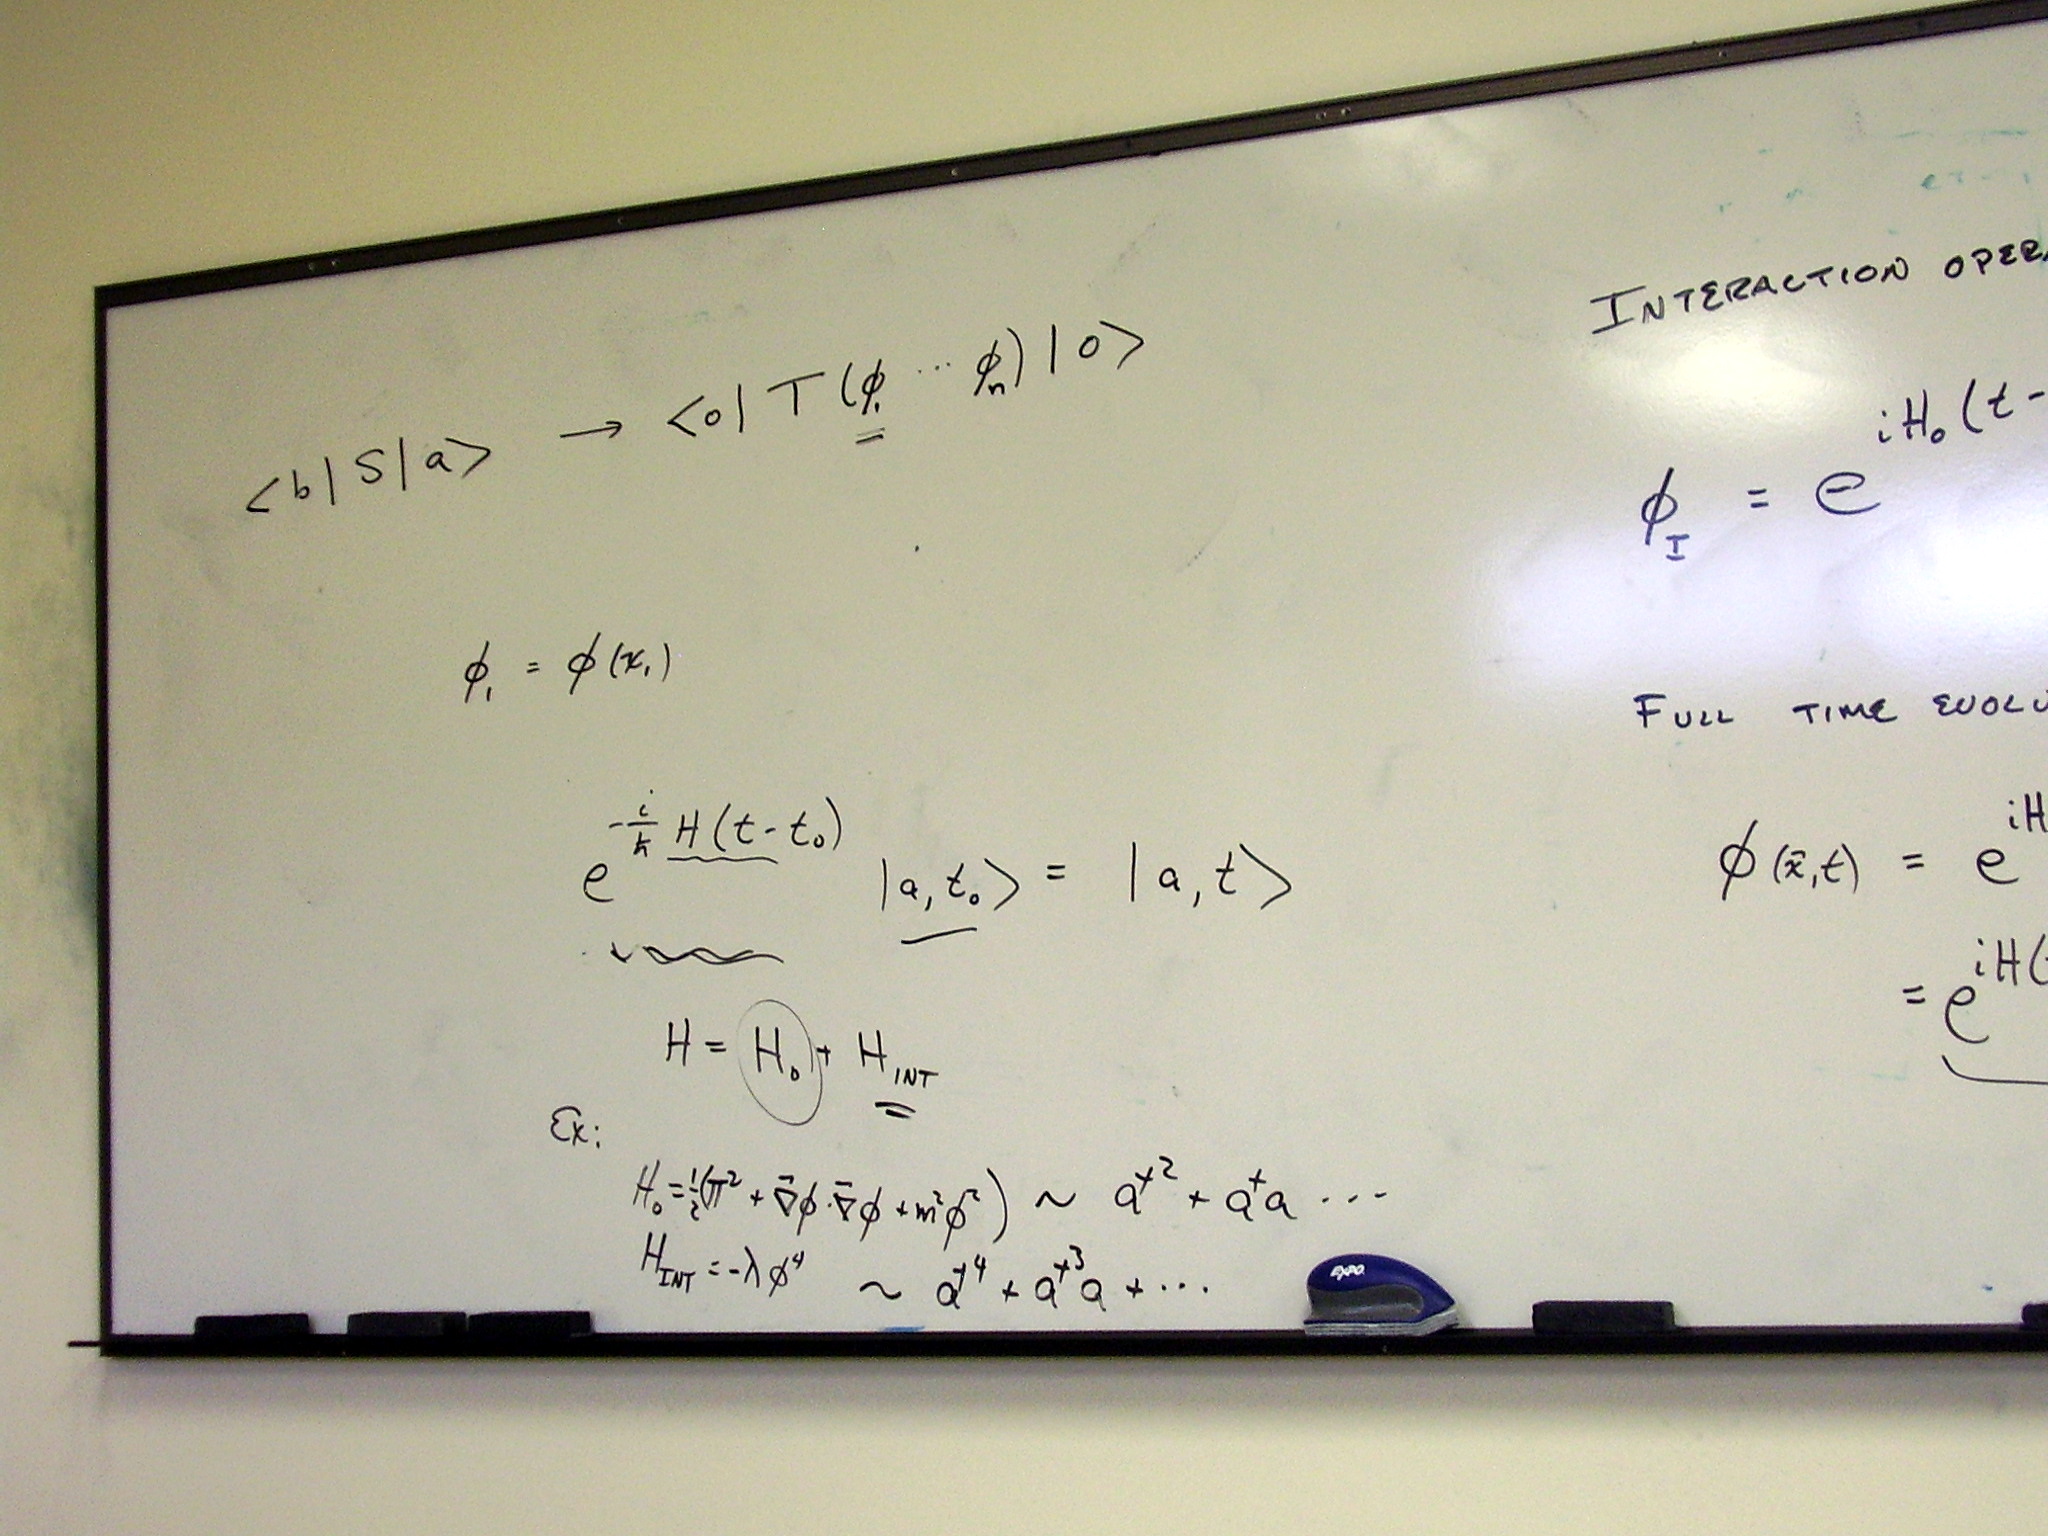 <b|S|a> → <0|T(ϕ₁ ⋯ ϕₙ)|0>
ϕ₁ = ϕ(x₁)
e^{-i/ħ H(t-t₀)} |a,t₀> = |a,t>
H = H₀ + H_INT
Ex:
H₀ = ½(π² + ∇⃗ϕ·∇⃗ϕ + m²ϕ²) ~ a†² + a†a ⋯
H_INT = -λϕ⁴ ~ a†⁴ + a†³a + ⋯
EXPO
INTERACTION OPER
ϕ_I = e^{iH₀(t-
FULL TIME EVOLU
ϕ(x⃗,t) = e^{iH
= e^{iH(